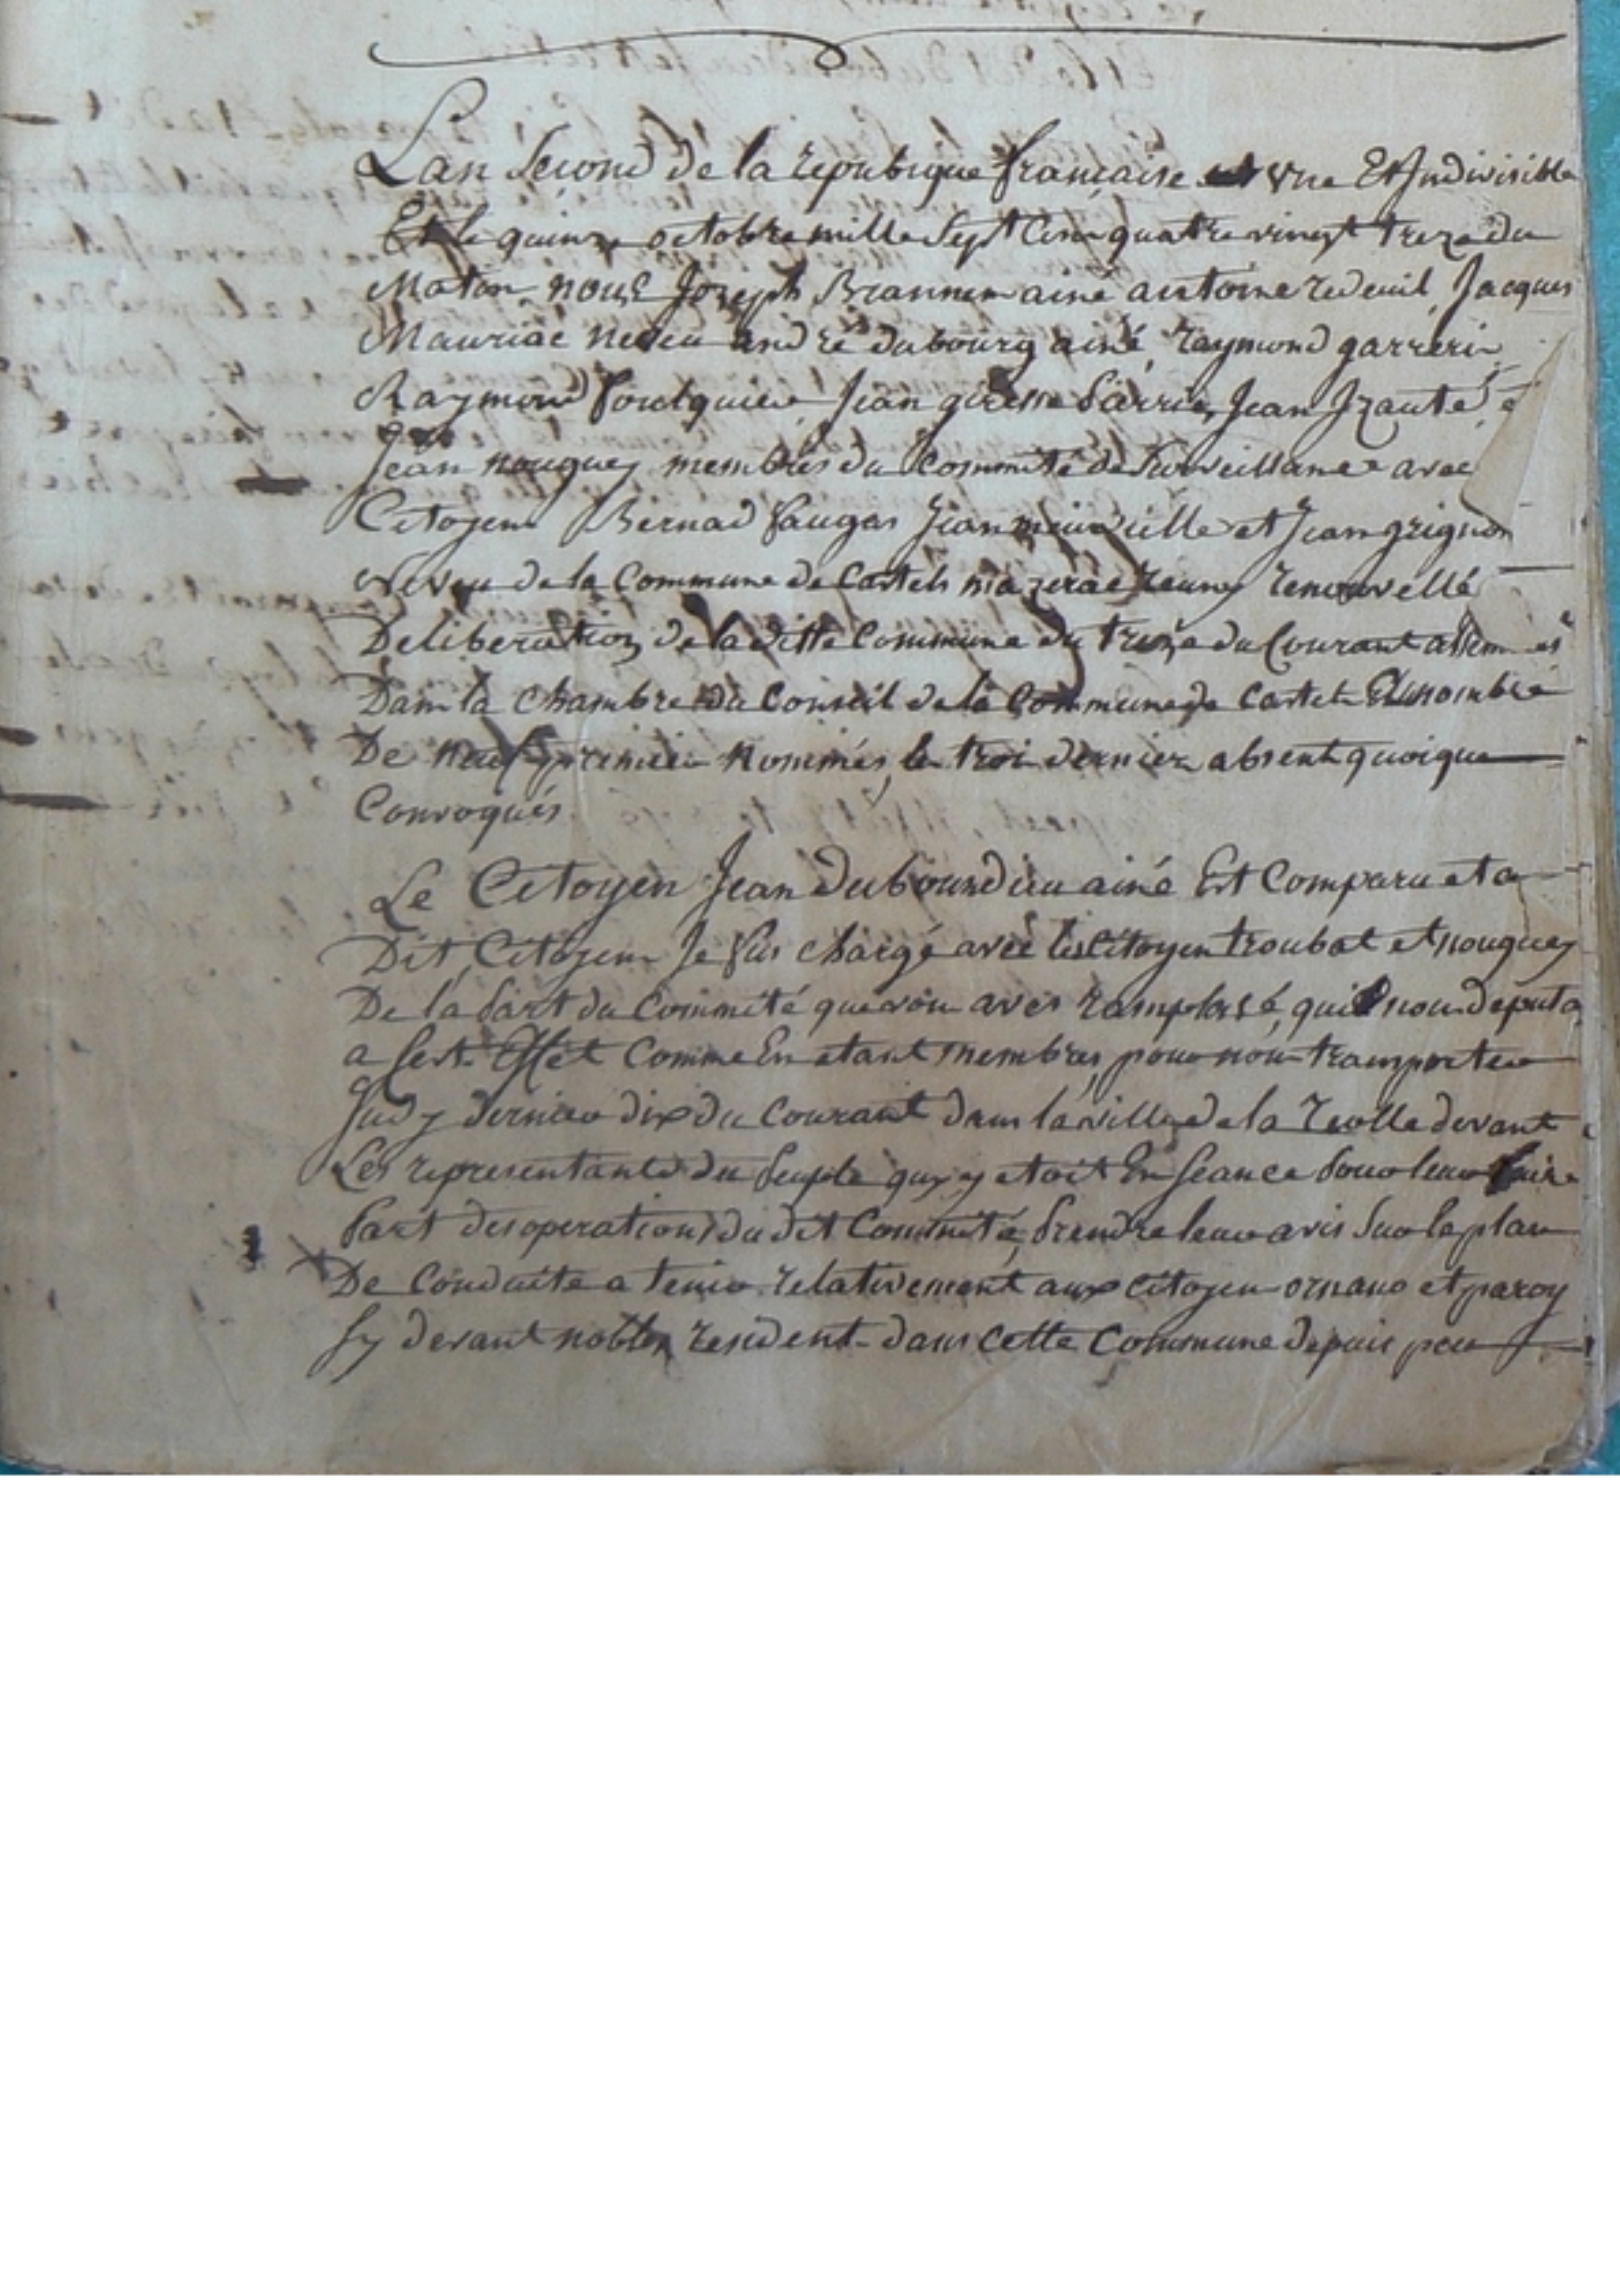 Lan second de la repubique française une Et Indivisible
Et le quinze octobre mille Sept Cens quatre vingt treze du
Matin nous Joseph Brannen ainé antoine redeuil, Jacques
Mauriac neveu andré dubourg ainé, raymond garreri
Raymond foulquier, Jean giresse Jean Izauté, e
Jean nouguey membres du Committé de Surveillance avec
Citoyens Bernad faugas Jean et Jean grignon
Neveu de la Commune de Castets mazerac reuny renouvellé
Deliberation de la ditte Commune du treize du Courant
Dans la Chambre du Conseil de la Commune de Castets nombre
De neuf premier Nommés, les troi dernier absent quoique
Convoqués
Le Citoyen Jean dubourdieu ainé Est Comparu et a
Dit, Citoyens Je fus chargé avec les Citoyen troubat et nouguey
De la part du Committé que vous aves ramplassé, qui nous deputa
a sest Effet Comme En etant membres, pour nous transporter
Judy dernier dix du Courant dans la ville de la reolle devant
Les representants du peuple quy y etoit En seance pour leur faire
part des operations du dit Committé, prendre leur avis sur le plan
De Conduite a tenir relativement aux citoyens ornano et paroy
sy devant nobles resident dans cette Commune depuis peu